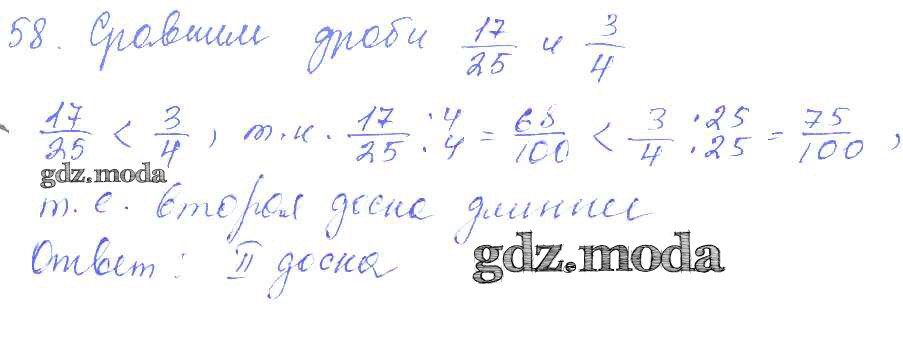 58. Сравним дроби 17/25 и 3/4
17/25 < 3/4, т.к. 17·4/25·4 = 68/100 < 3·25/4·25 = 75/100,
gdz.moda
т.е. вторая доска длиннее
Ответ: II доска
gdz.moda